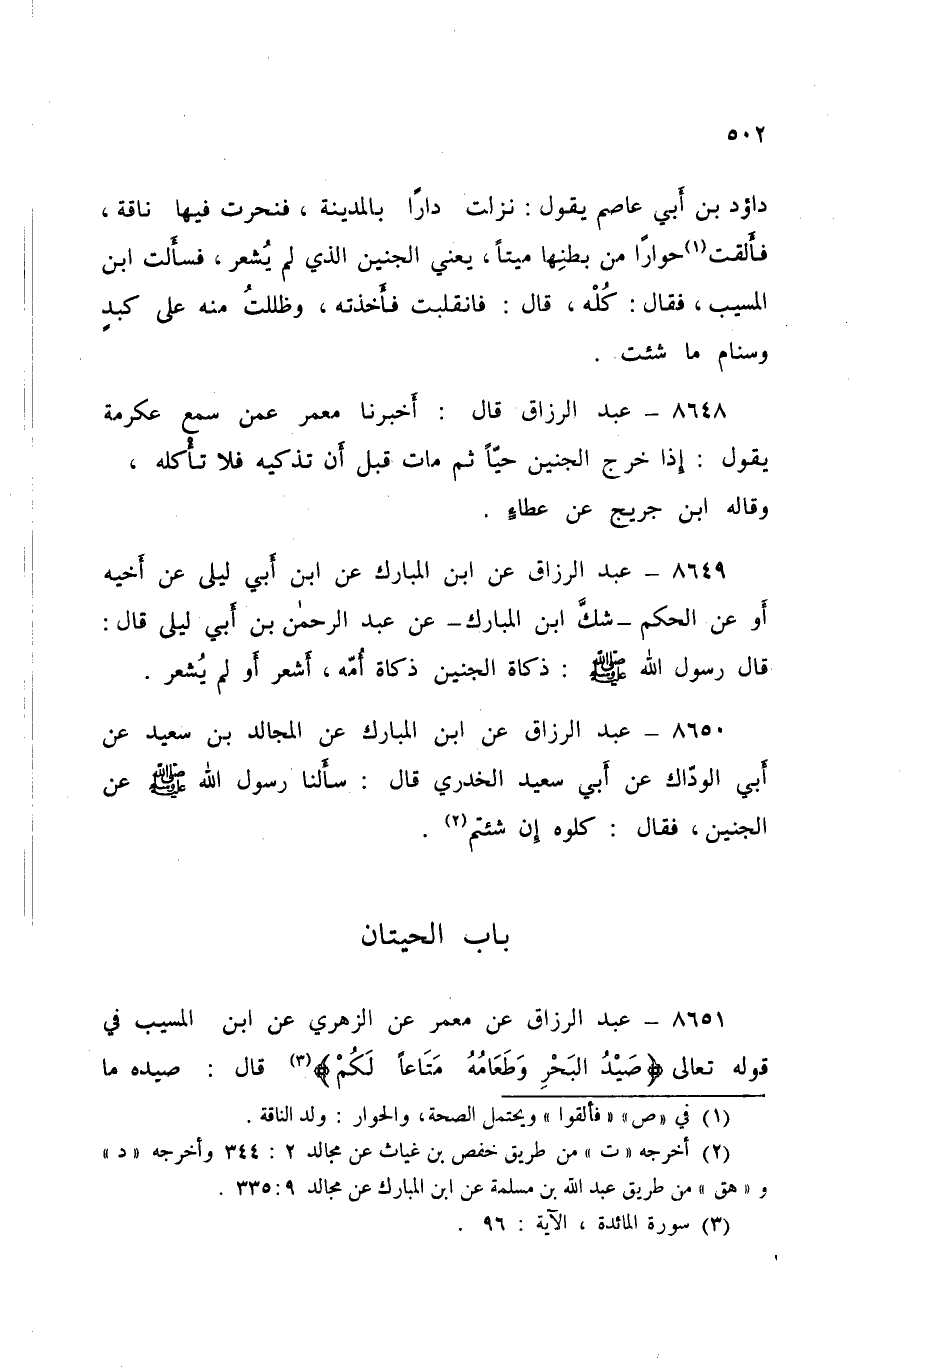 ٥٠٢
داؤد بن أبي عاصم يقول : نزلت دارًا بالمدينة ، فنحرت فيها ناقة ،
فألقت(١) حوارًا من بطنِها ميتاً ، يعني الجنين الذي لم يُشعر ، فسألت ابن
المسيب ، فقال : كُلْه ، قال : فانقلبت فأخذته ، وظللتُ منه على كبدٍ
وسنام ما شئت .
٨٦٤٨ – عبد الرزاق قال : أخبرنا معمر عمن سمع عكرمة
يقول : إذا خرج الجنين حيّاً ثم مات قبل أن تذكيه فلا تأكله ،
وقاله ابن جريج عن عطاءٍ .
٨٦٤٩ – عبد الرزاق عن ابن المبارك عن ابن أبي ليلى عن أخيه
أو عن الحكم –شكَّ ابن المبارك– عن عبد الرحمٰن بن أبي ليلى قال :
قال رسول الله ﷺ : ذكاة الجنين ذكاة أُمّه ، أشعر أو لم يُشعر .
٨٦٥٠ – عبد الرزاق عن ابن المبارك عن المجالد بن سعيد عن
أبي الودّاك عن أبي سعيد الخدري قال : سألنا رسول الله ﷺ عن
الجنين ، فقال : كلوه إن شئتم(٢) .
باب الحيتان
٨٦٥١ – عبد الرزاق عن معمر عن الزهري عن ابن المسيب في
قوله تعالى ﴿صَيْدُ البَحْرِ وَطَعَامُهُ مَتَاعاً لَكُمْ﴾(٣) قال : صيده ما
(١) في «ص» « فألقوا » ويحتمل الصحة ، والحوار : ولد الناقة .
(٢) أخرجه « ت » من طريق خفص بن غياث عن مجالد ٢ : ٣٤٤ وأخرجه « د »
و « هق » من طريق عبد الله بن مسلمة عن ابن المبارك عن مجالد ٩ : ٣٣٥ .
(٣) سورة المائدة ، الآية : ٩٦ .